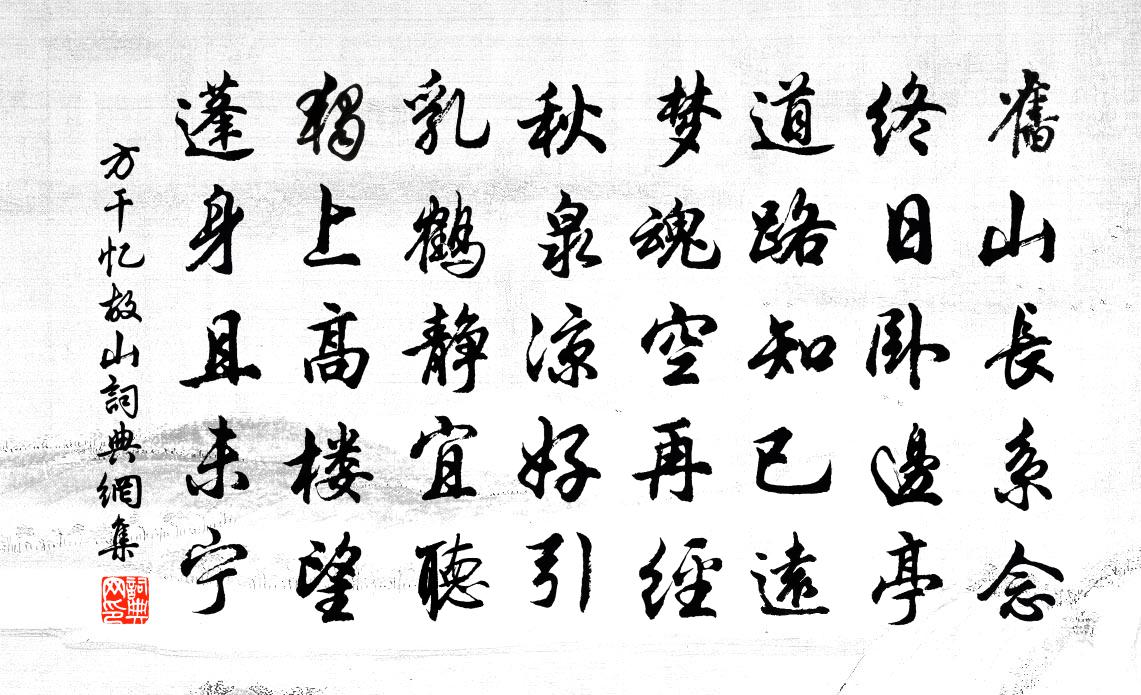 舊山長系念
終日臥邊亭
道路知已遠
梦魂空再經
秋泉凉好引
乳鶴靜宜聽
獨上高楼望
蓬身且未宁
方干忆故山詞典網集
詞典网印